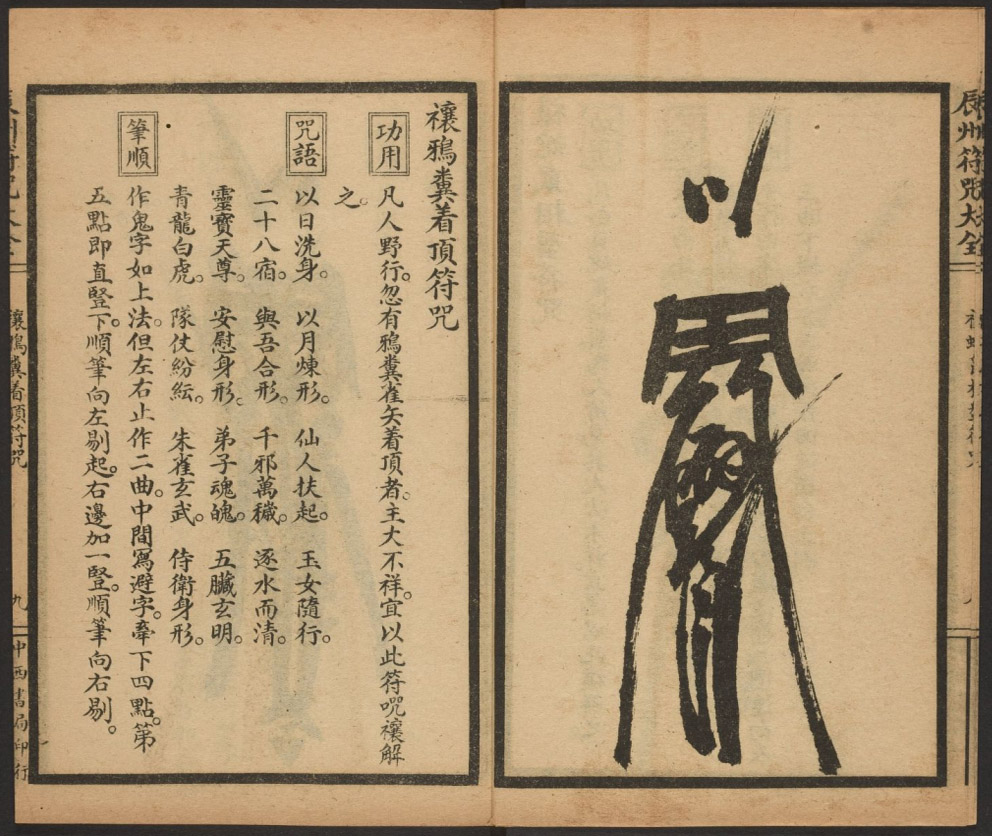 辰州符咒大全
禳鴉糞着頂符咒
功用
凡人野行。忽有鴉糞雀矢着頂者。主大不祥。宜以此符咒禳解
之。
咒語
以日洗身。以月煉形。仙人扶起。玉女隨行。
二十八宿。與吾合形。千邪萬穢。逐水而清。
靈寶天尊。安慰身形。弟子魂魄。五臟玄明。
青龍白虎。隊仗紛紜。朱雀玄武。侍衛身形。
筆順
作鬼字如上法。但左右止作二曲。中間寫避字。牽下四點。第
五點即直豎下。順筆向左剔起。右邊加一豎。順筆向右剔。
禳鴉糞着頂符咒
九
中西書局印行